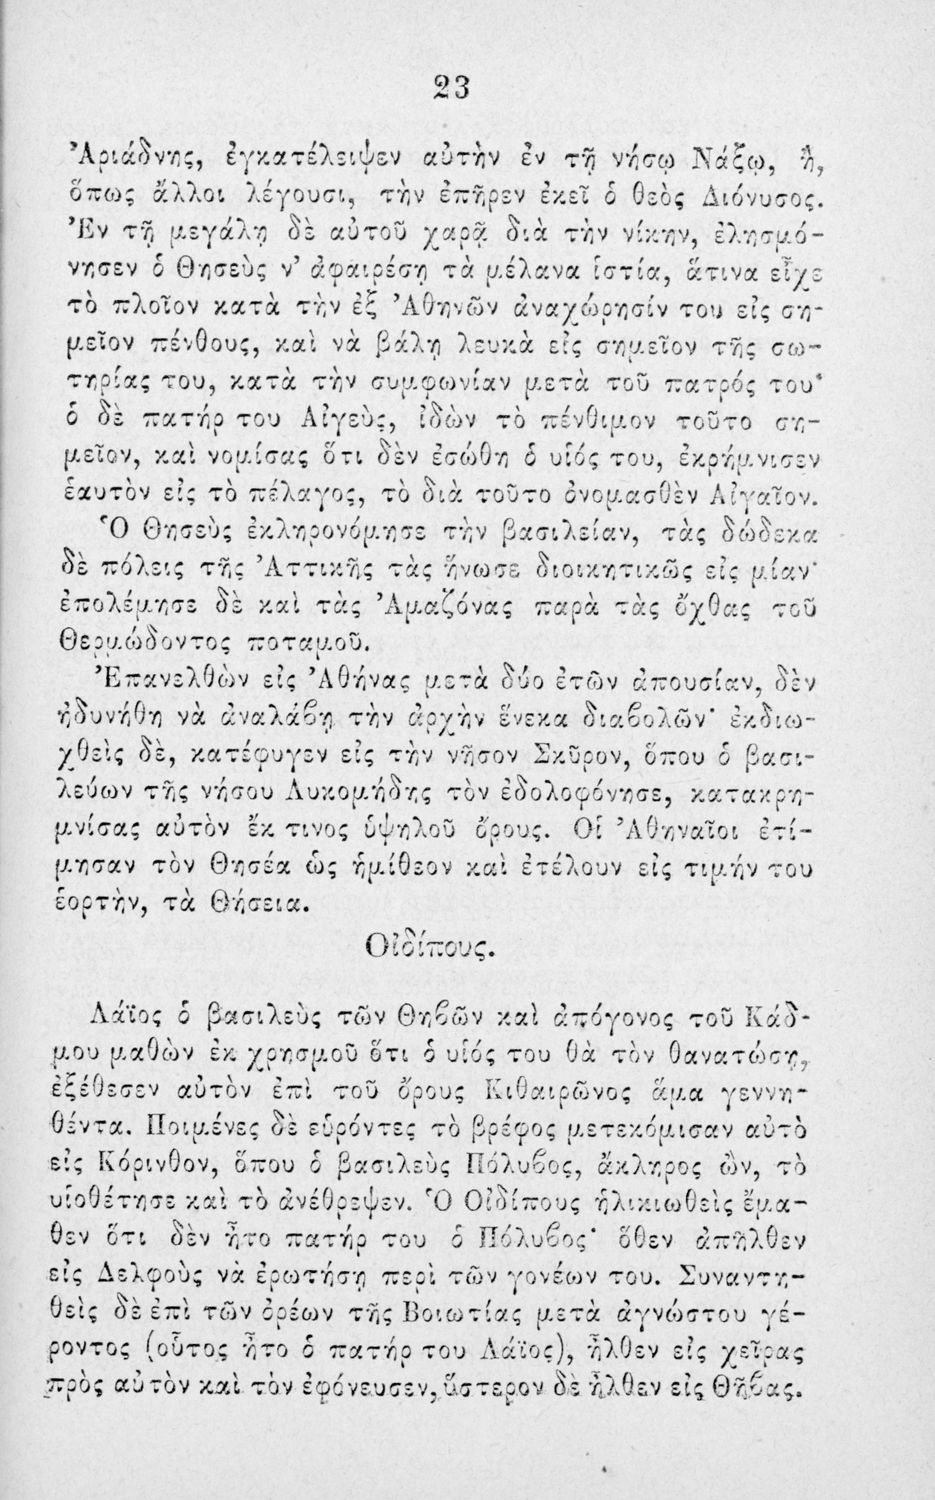 23
Ἀριάδνης, ἐγκατέλειψεν αὐτὴν ἐν τῇ νήσῳ Νάξῳ, ἢ,
ὅπως ἄλλοι λέγουσι, τὴν ἐπῆρεν ἐκεῖ ὁ θεὸς Διόνυσος.
Ἐν τῇ μεγάλῃ δὲ αὐτοῦ χαρᾷ διὰ τὴν νίκην, ἐλησμό-
νησεν ὁ Θησεὺς ν’ ἀφαιρέσῃ τὰ μέλανα ἱστία, ἅτινα εἶχε
τὸ πλοῖον κατὰ τὴν ἐξ Ἀθηνῶν ἀναχώρησίν του εἰς ση-
μεῖον πένθους, καὶ νὰ βάλῃ λευκὰ εἰς σημεῖον τῆς σω-
τηρίας του, κατὰ τὴν συμφωνίαν μετὰ τοῦ πατρός του·
ὁ δὲ πατήρ του Αἰγεὺς, ἰδὼν τὸ πένθιμον τοῦτο ση-
μεῖον, καὶ νομίσας ὅτι δὲν ἐσώθη ὁ υἱός του, ἐκρήμνισεν
ἑαυτὸν εἰς τὸ πέλαγος, τὸ διὰ τοῦτο ὀνομασθὲν Αἰγαῖον.
Ὁ Θησεὺς ἐκληρονόμησε τὴν βασιλείαν, τὰς δώδεκα
δὲ πόλεις τῆς Ἀττικῆς τὰς ἥνωσε διοικητικῶς εἰς μίαν·
ἐπολέμησε δὲ καὶ τὰς Ἀμαζόνας παρὰ τὰς ὄχθας τοῦ
Θερμώδοντος ποταμοῦ.
Ἐπανελθὼν εἰς Ἀθήνας μετὰ δύο ἐτῶν ἀπουσίαν, δὲν
ἠδυνήθη νὰ ἀναλάβῃ τὴν ἀρχὴν ἕνεκα διαβολῶν· ἐκδιω-
χθεὶς δὲ, κατέφυγεν εἰς τὴν νῆσον Σκῦρον, ὅπου ὁ βασι-
λεύων τῆς νήσου Λυκομήδης τὸν ἐδολοφόνησε, κατακρη-
μνίσας αὐτὸν ἔκ τινος ὑψηλοῦ ὄρους. Οἱ Ἀθηναῖοι ἐτί-
μησαν τὸν Θησέα ὡς ἡμίθεον καὶ ἐτέλουν εἰς τιμήν του
ἑορτὴν, τὰ Θήσεια.
Οἰδίπους.
Λάϊος ὁ βασιλεὺς τῶν Θηβῶν καὶ ἀπόγονος τοῦ Κάδ-
μου μαθὼν ἐκ χρησμοῦ ὅτι ὁ υἱός του θὰ τὸν θανατώσῃ,
ἐξέθεσεν αὐτὸν ἐπὶ τοῦ ὄρους Κιθαιρῶνος ἅμα γεννη-
θέντα. Ποιμένες δὲ εὑρόντες τὸ βρέφος μετεκόμισαν αὐτὸ
εἰς Κόρινθον, ὅπου ὁ βασιλεὺς Πόλυβος, ἄκληρος ὢν, τὸ
υἱοθέτησε καὶ τὸ ἀνέθρεψεν. Ὁ Οἰδίπους ἡλικιωθεὶς ἔμα-
θεν ὅτι δὲν ἦτο πατήρ του ὁ Πόλυβος· ὅθεν ἀπῆλθεν
εἰς Δελφοὺς νὰ ἐρωτήσῃ περὶ τῶν γονέων του. Συναντη-
θεὶς δὲ ἐπὶ τῶν ὀρέων τῆς Βοιωτίας μετὰ ἀγνώστου γέ-
ροντος (οὗτος ἦτο ὁ πατήρ του Λάϊος), ἦλθεν εἰς χεῖρας
πρὸς αὐτὸν καὶ τὸν ἐφόνευσεν, ὕστερον δὲ ἦλθεν εἰς Θῆβας.